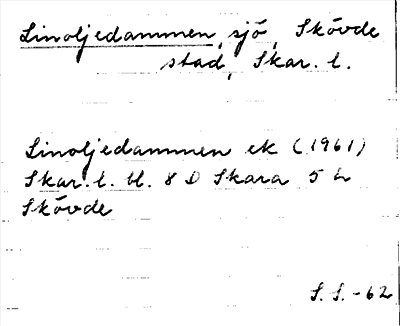 Linoljedammen, sjö, Skövde
stad, Skar. l.
Linoljedammen ek (1961)
Skar. l. bl. 8 D Skara 5 h
Skövde
S. S. -62